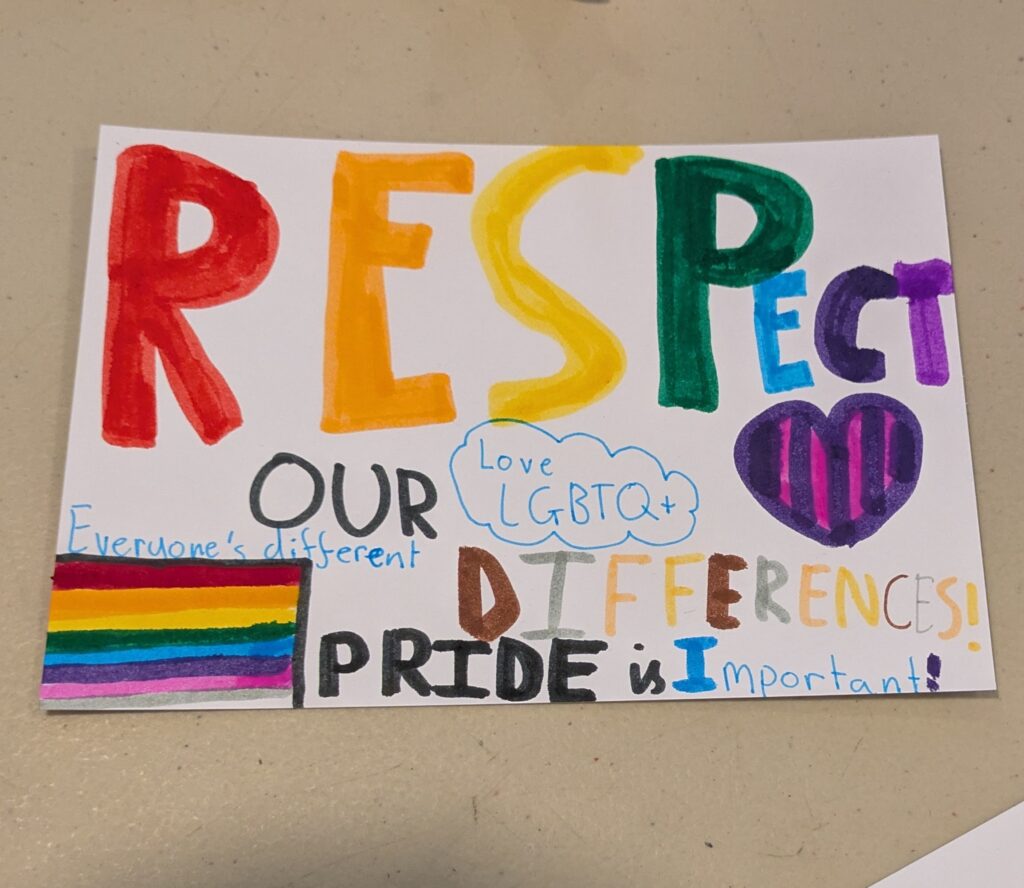 RESPECT
OUR
Love
LGBTQ+
Everyone's different
DIFFERENCES!
PRIDE is Important!